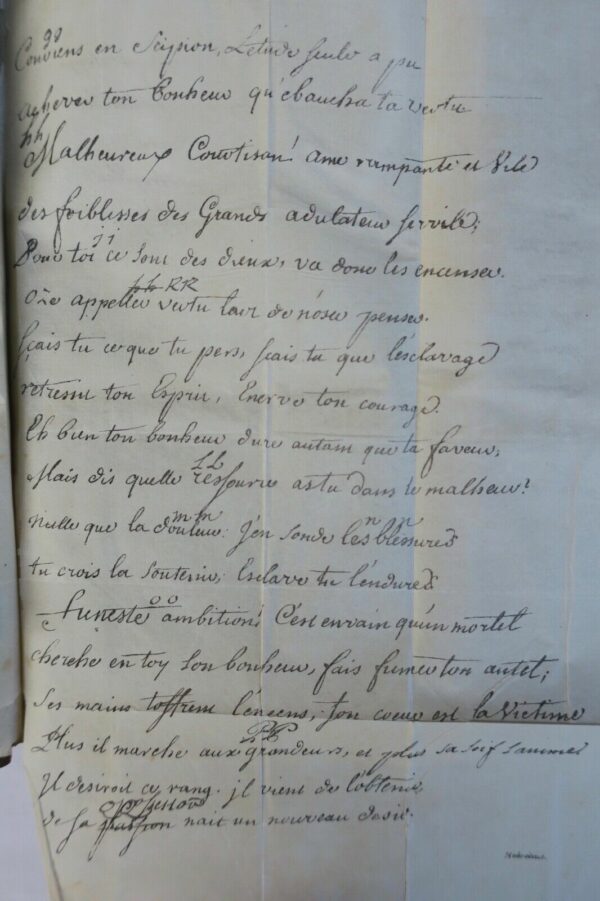 gg
Conviens en Scipion, L'etude seule a pu
achever ton bonheur qu'ebaucha ta vertu
hh
Malheureux Courtisan! ame rampante et Vile
des foiblesses des Grands adulateur servile;
ii
Pour toi ce sont des dieux, va donc les encenser.
kk
oze appeller vertu l'art de n'oser penser.
sçais tu ce que tu pers, sçais tu que l'esclavage
retressit ton Esprit, Enerve ton courage.
Eh bien ton bonheur dure autant que ta faveur,
LL
Mais dis quelle ressource as tu dans le malheur?
mm nn
nulle que la douleur. j'en sonde les blessures
tu crois la soutenir, Esclave tu l'endures
oo
funeste ambition! C'est envain qu'un mortel
cherche en toy son bonheur, fais fumer ton autel;
ses mains t'offrent l'encens, son coeur est la Victime
PP
Plus il marche aux grandeurs, et plus sa soif s'anime
Il desiroit ce rang. il vient de l'obtenir
de sa passion nait un nouveau desir.